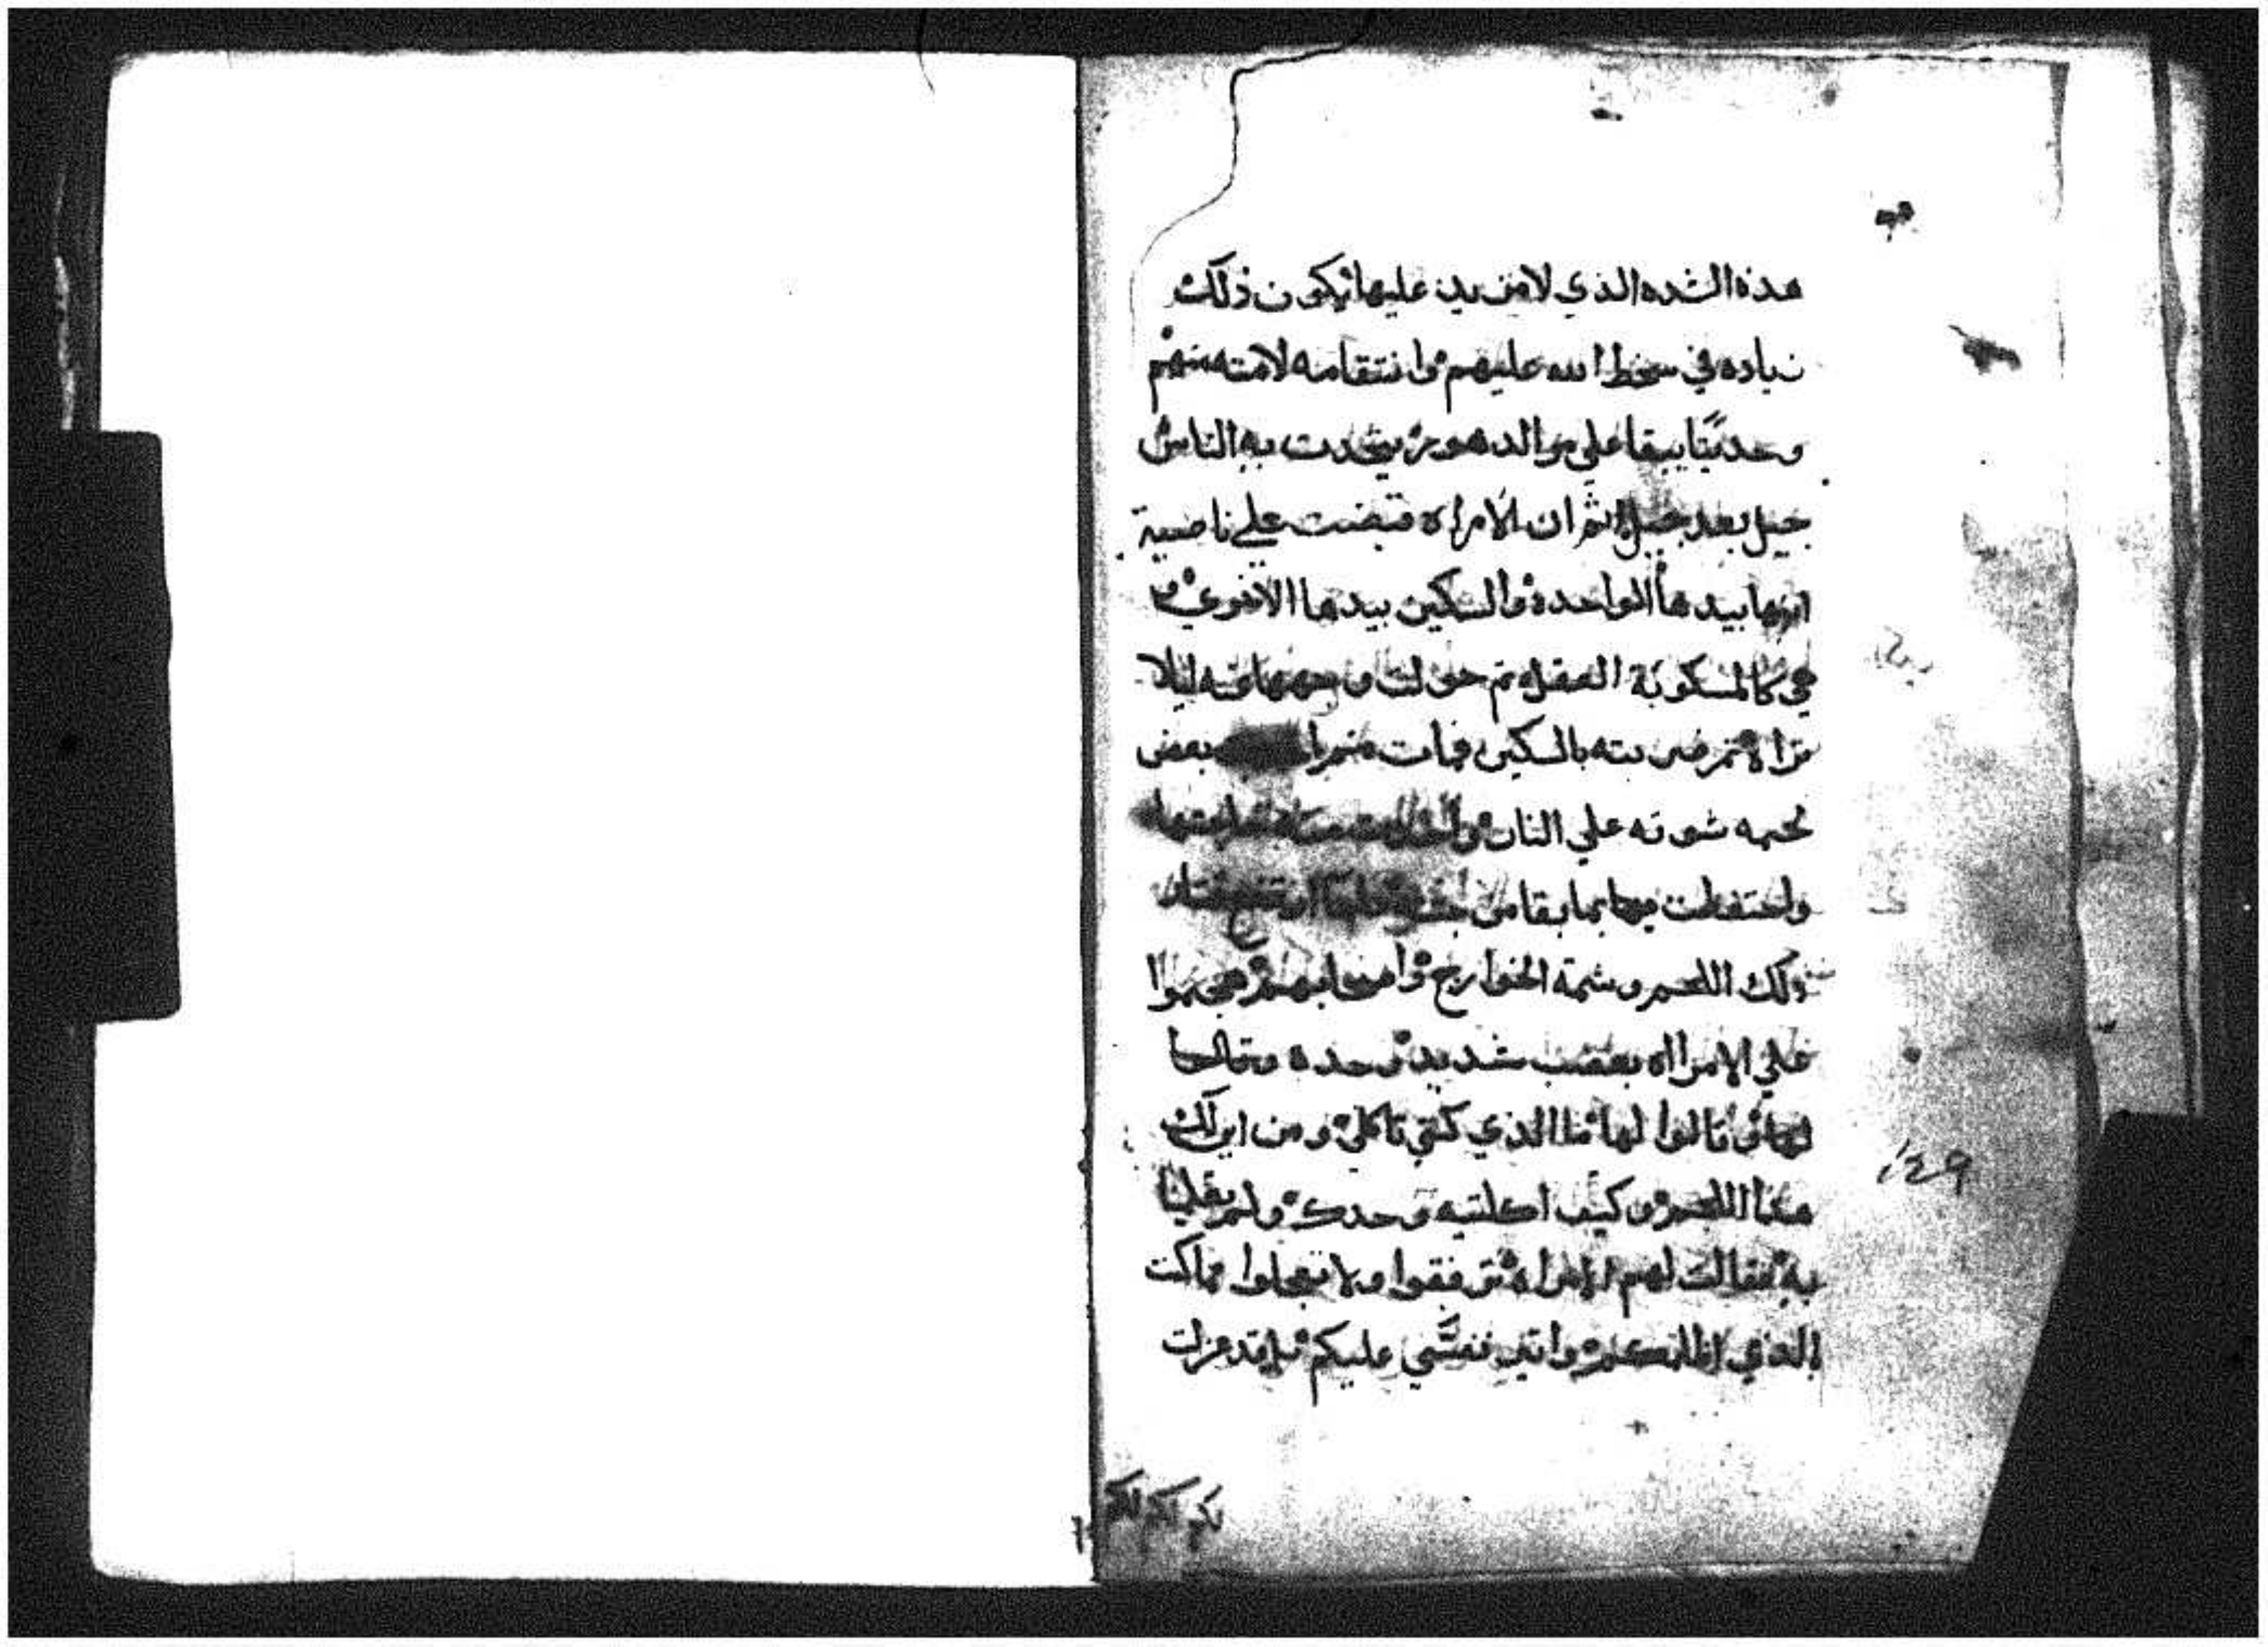 هذه الشده الذي لا مزيد عليها يكون ذلك
زياده في سخط الله عليهم وانتقامه لامته منهم
وحديثا يبقا علي مر الدهور يتحدت به الناس
جيل بعد جيل ثم ان الامراه قبضت علي ناصية
ابنها بيدها الواحدة والسكين بيدها الاخري و
هي كالمسكوبة العقل ثم حولت وجهها عنه ليلا
تراه ثم ضربته بالسكين فمات بعض
لحمه شوته علي النار
واحتفظت بما بقا من
ذلك اللحم وشمته الخوارج واصحابهم هجموا
علي الامراه بغضب شديد وحده
لها وقالوا لها ما الذي كنتي تاكلي ومن اين لك
هذا اللحم وكيف اكلتيه وحدك ولم
به فقالت لهم الامراه ترفقوا ولا تعجلوا فما كنت
بالذي اظلمكم واتي نفسي عليكم بل قد عزلت
١٤٩
لكم لكم لكم